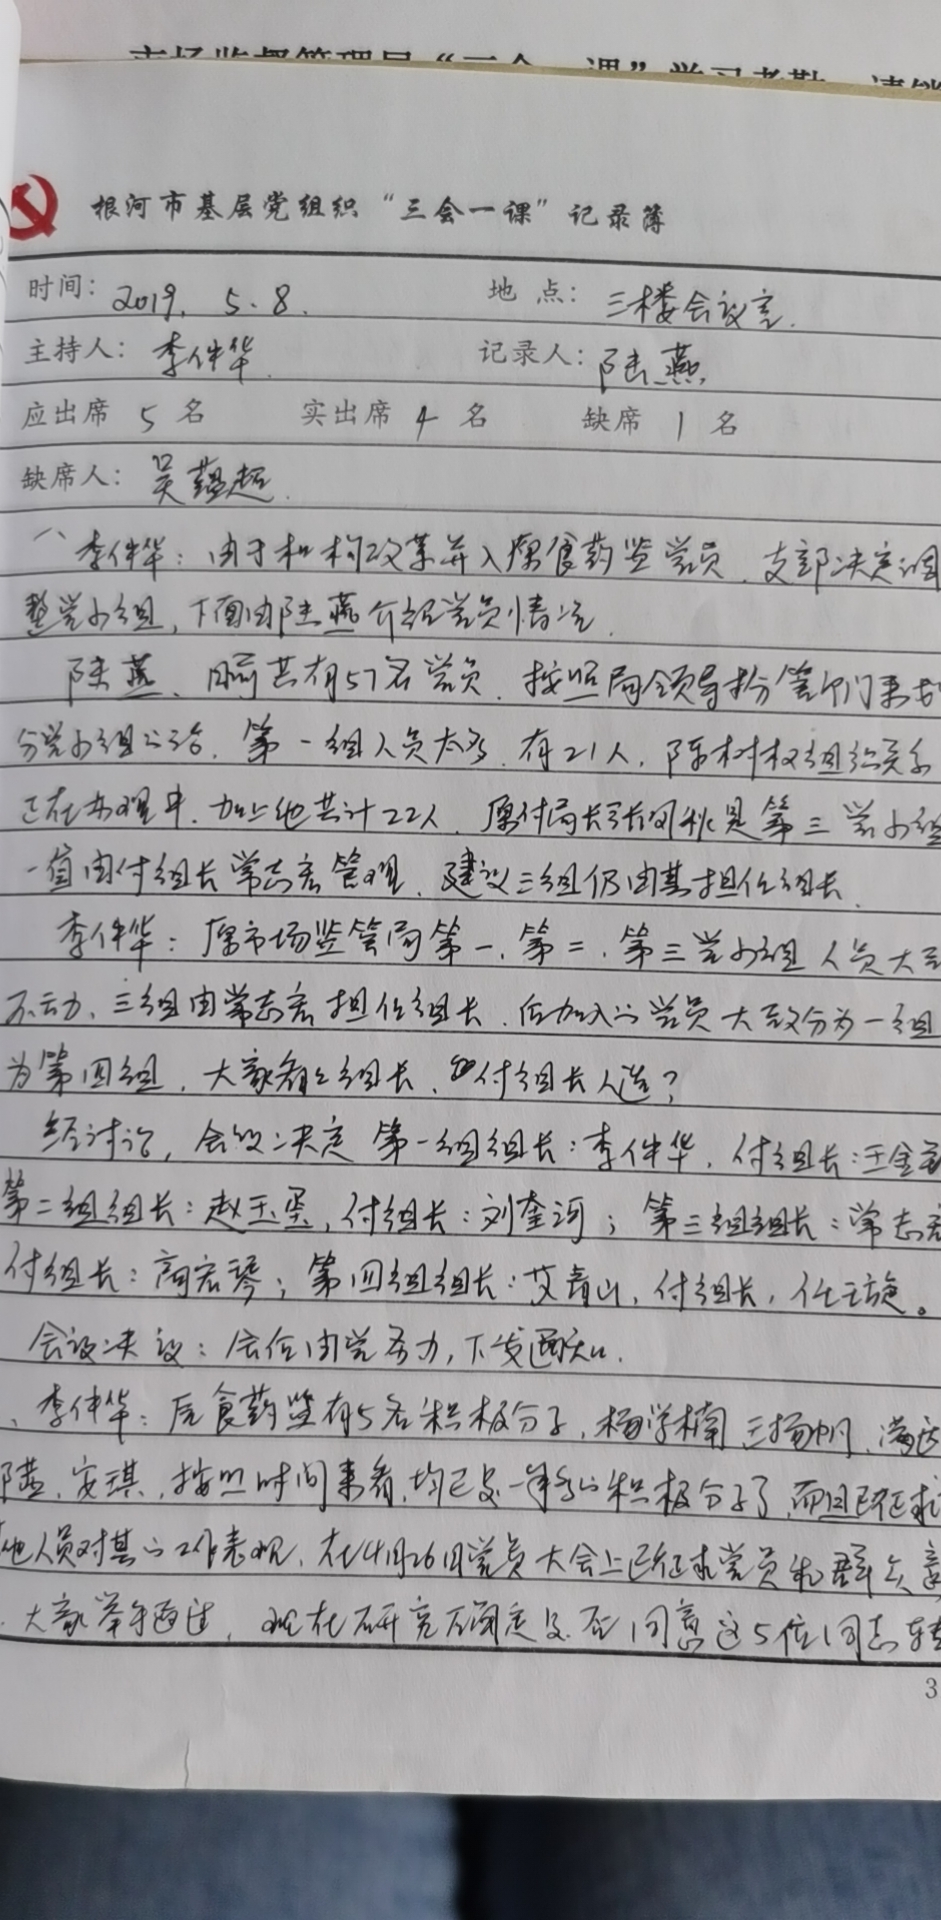 市场监督管理局“三会一课”学习考勤、请销
根河市基层党组织“三会一课”记录簿
时间：2019. 5.8. 地点：三楼会议室.
主持人：李伴华. 记录人：陆燕
应出席 5 名 实出席 4 名 缺席 1 名
缺席人：吴蕴超.
一、李伴华：由于机构改革并入原食药监党员，支部决定调
整党小组，下面由陆燕介绍党员情况.
陆燕、目前共有57名党员，按照局领导分管部门来划
分党小组较合，第一组人员太多，有21人，陈树权组织关系
正在办理中，加上他共计22人，原付局长张国秋是第三党小组
一直由付组长常志宏管理，建议三组仍由其担任组长.
李伴华：原市场监管局第一、第二、第三党小组人员大致
不动、三组由常志宏担任组长，后加入的党员大致分为一组
为第四组，大家看看组长、付组长人选？
经讨论，会议决定第一组组长：李伴华，付组长：王金
第二组组长：赵玉，付组长：刘奎河；第三组组长：常志宏
付组长：高宏琴；第四组组长：艾青山，付组长，任云旋。
会议决议：会后由党务办，下发通知.
、李伴华：原食药监有5名积极分子，杨学楠、王扬帆、满
陆燕、安琪，按照时间来看，均已是一年多的积极分子了，而且已征求
他人员对其的工作表现，在4月26日党员大会上已征求党员和群众意
，大家举手通过，现在研究确定是否同意这5位同志转
3